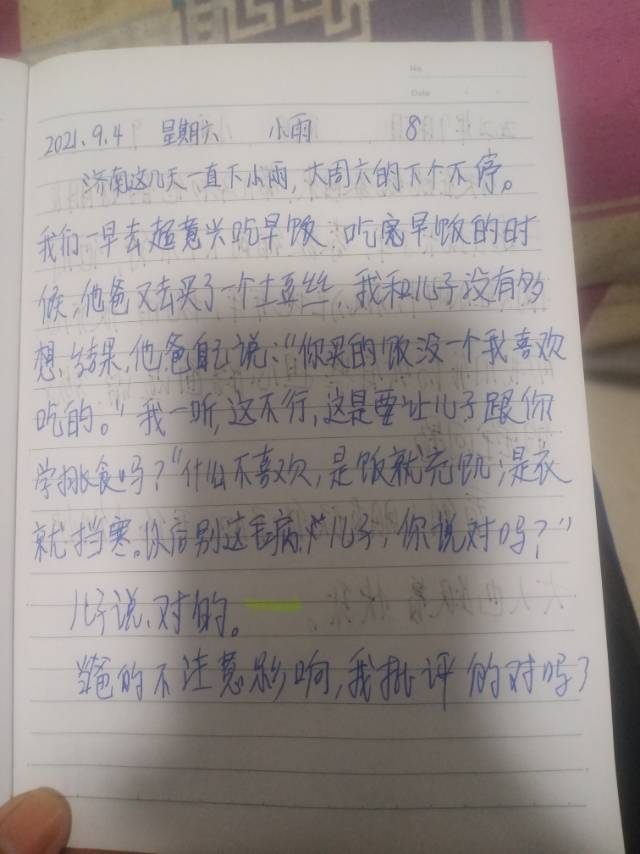 No
Date
2021.9.4 星期六 小雨 8
济南这几天一直下小雨,大周六的下个不停。
我们一早去超意兴吃早饭,吃完早饭的时
候,他爸又去买了一个土豆丝,我和儿子没有多
想,结果,他爸自己说:“你买的饭没一个我喜欢
吃的。”我一听,这不行,这是要让儿子跟你
学挑食吗?“什么不喜欢,是饭就充饥,是衣
就挡寒。以后别这毛病,儿子,你说对吗?”
儿子说,对的。
当爸的不注意影响,我批评的对吗?